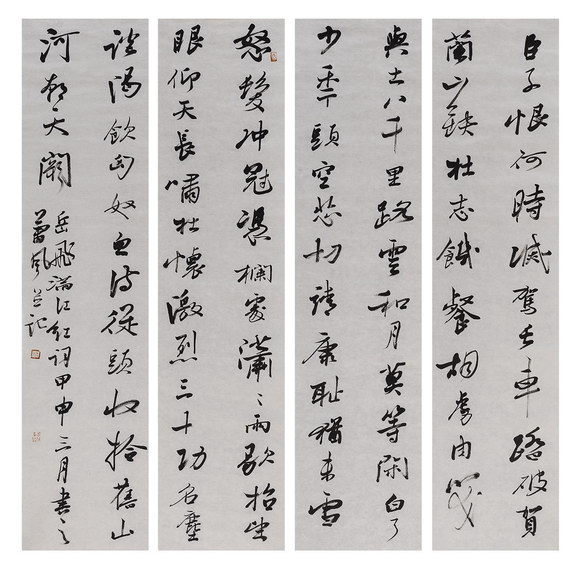 怒髮冲冠憑欄處瀟々雨歇抬望
眼仰天長嘯壮懷激烈三十功名塵
與土八千里路雲和月莫等閑白了
少年頭空悲切靖康耻猶未雪
臣子恨何時滅駕長車踏破賀
蘭山缺壮志饑餐胡虜肉笑
談渴飲匈奴血待從頭收拾舊山
河朝天闕
岳飛滿江紅詞甲申三月書之
風並記